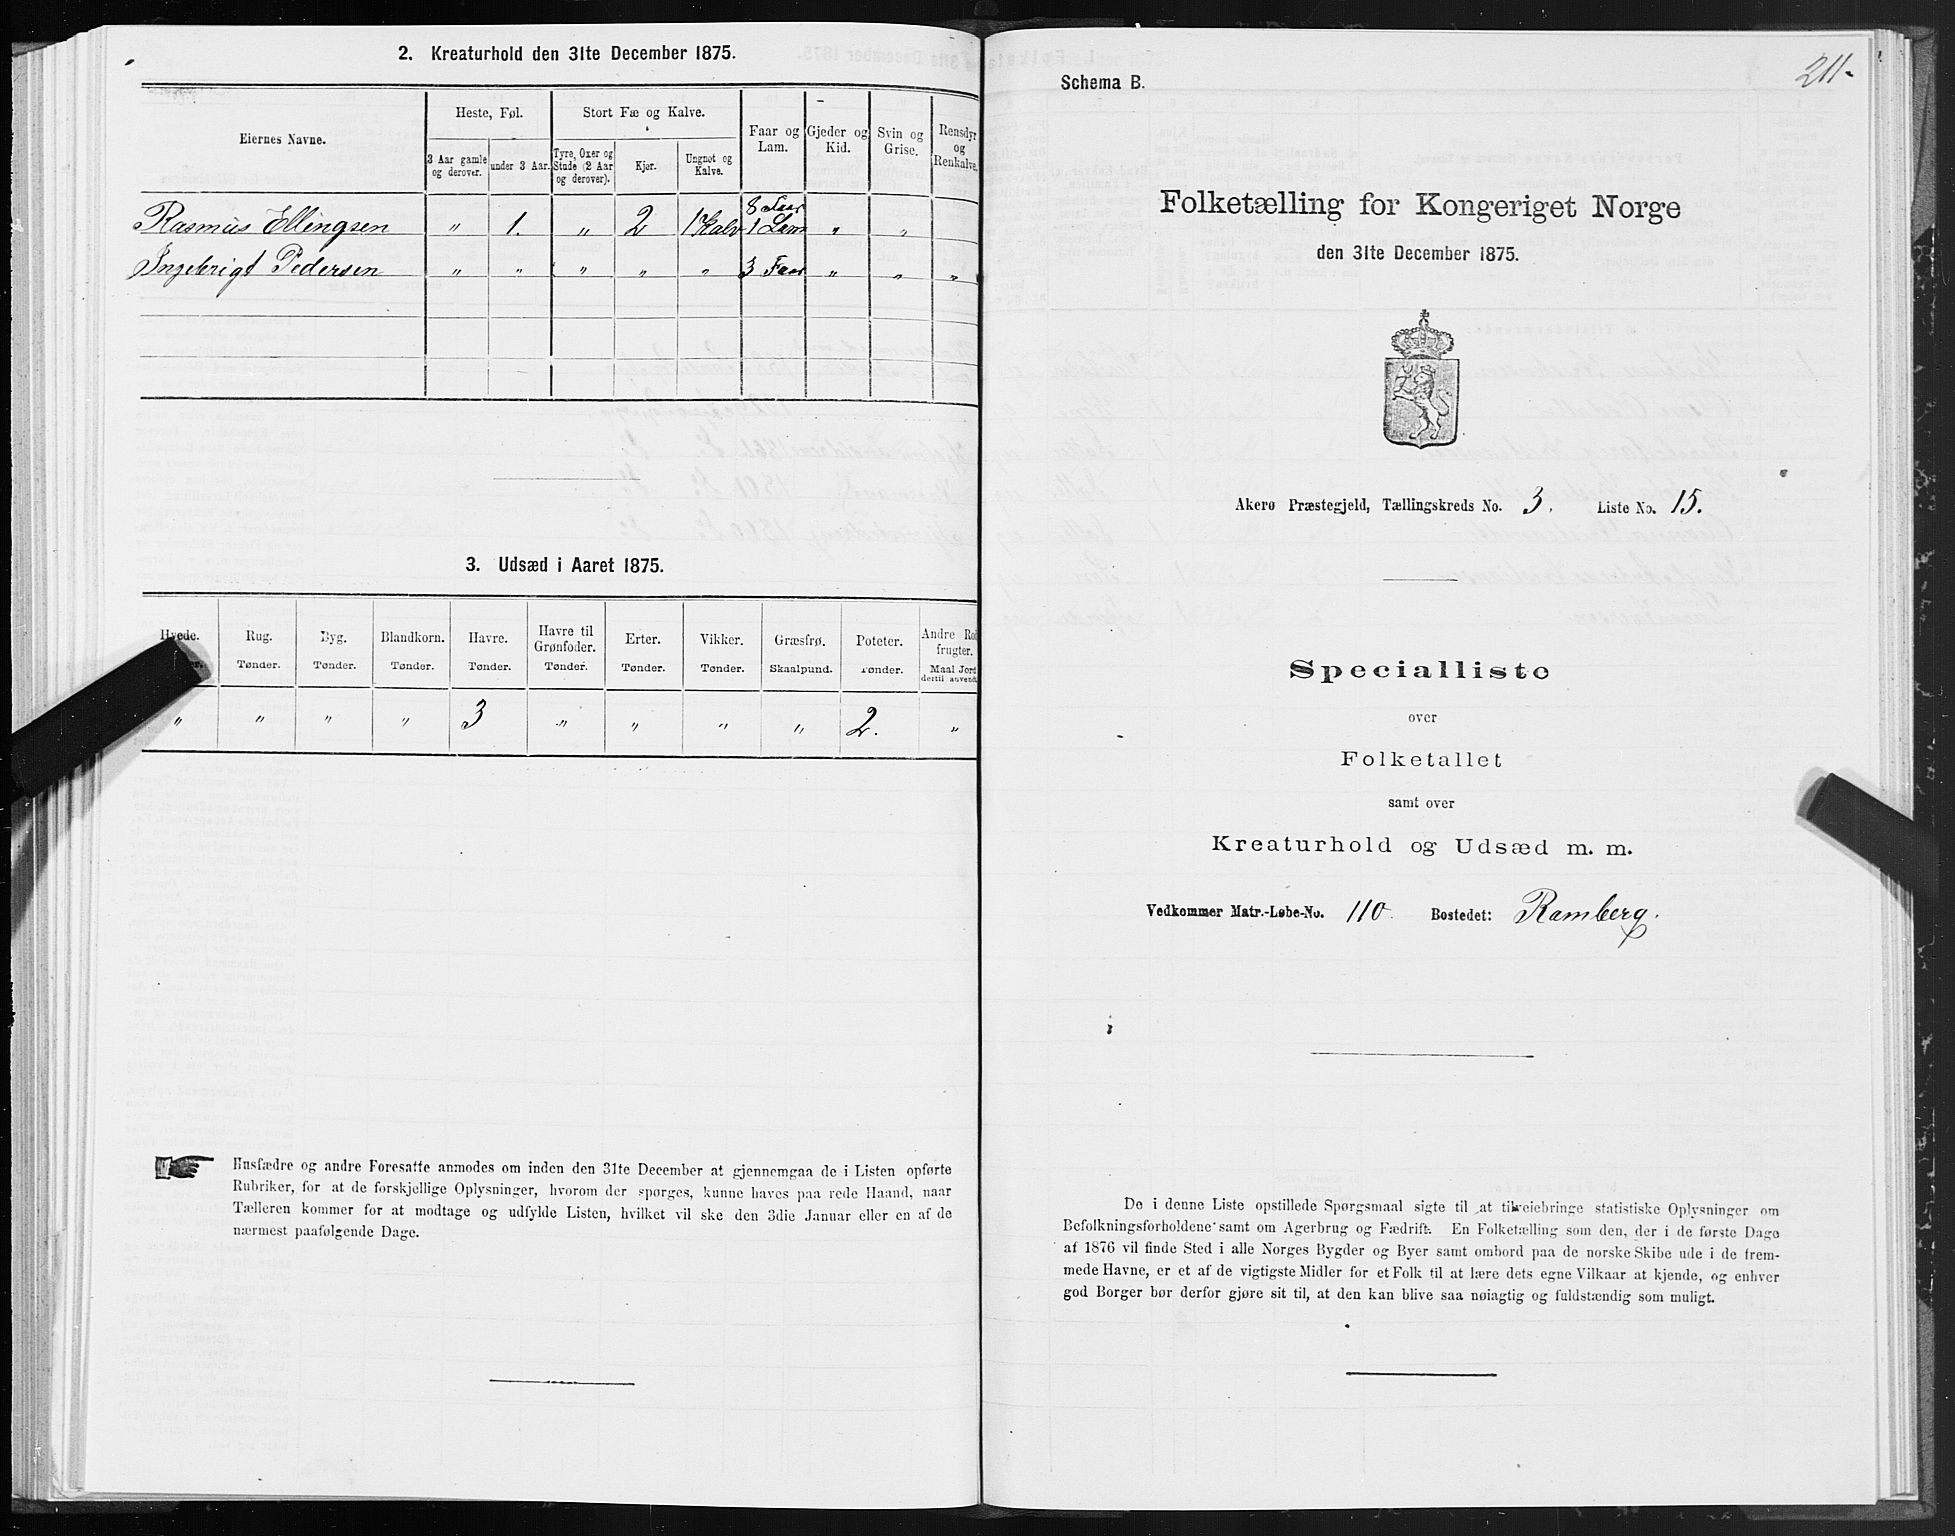 2. Kreaturhold den 31te December 1875.
Eiernes Navne.
Heste, Føl.
Stort Fæ og Kalve.
Faar og Lam.
Gjeder og Kid.
Svin og Grise.
Rensdyr og Renkalve.
3 Aar gamle og derover.
under 3 Aar.
Tyre, Oxer og Stude (2 Aar og derover).
Kjør.
Ungnøt og Kalve.
Rasmus Ellingsen " 1. " 2 1 Kalv 8 Faar 1 Lam " "
Ingebrigt Pedersen " " " " " 3 Faar " " "
3. Udsæd i Aaret 1875.
Hvede. Rug. Byg. Blandkorn. Havre. Havre til Grønfoder. Erter. Vikker. Græsfrø. Poteter. Andre Rodfrugter.
Tønder. Tønder. Tønder. Tønder. Tønder. Tønder. Tønder. Skaalpund. Tønder. Maal Jord dertil anvendt
" " " " 3 " " " " 2. "
Husfædre og andre Foresatte anmodes om inden den 31te December at gjennemgaa de i Listen opførte
Rubriker, for at de forskjellige Oplysninger, hvorom der spørges, kunne haves paa rede Haand, naar
Tælleren kommer for at modtage og udfylde Listen, hvilket vil ske den 3die Januar eller en af de
nærmest paafølgende Dage.
211.
Schema B.
Folketælling for Kongeriget Norge
den 31te December 1875.
Akerø Præstegjeld, Tællingskreds No. 3. Liste No. 15.
Specialliste
over
Folketallet
samt over
Kreaturhold og Udsæd m. m.
Vedkommer Matr.-Løbe-No. 110. Bostedet: Ramberg.
De i denne Liste opstillede Spørgsmaal sigte til at tilveiebringe statistiske Oplysninger om
Befolkningsforholdene samt om Agerbrug og Fædrift. En Folketælling som den, der i de første Dage
af 1876 vil finde Sted i alle Norges Bygder og Byer samt ombord paa de norske Skibe ude i de frem-
mede Havne, er et af de vigtigste Midler for et Folk til at lære dets egne Vilkaar at kjende, og enhver
god Borger bør derfor gjøre sit til, at den kan blive saa nøiagtig og fuldstændig som muligt.